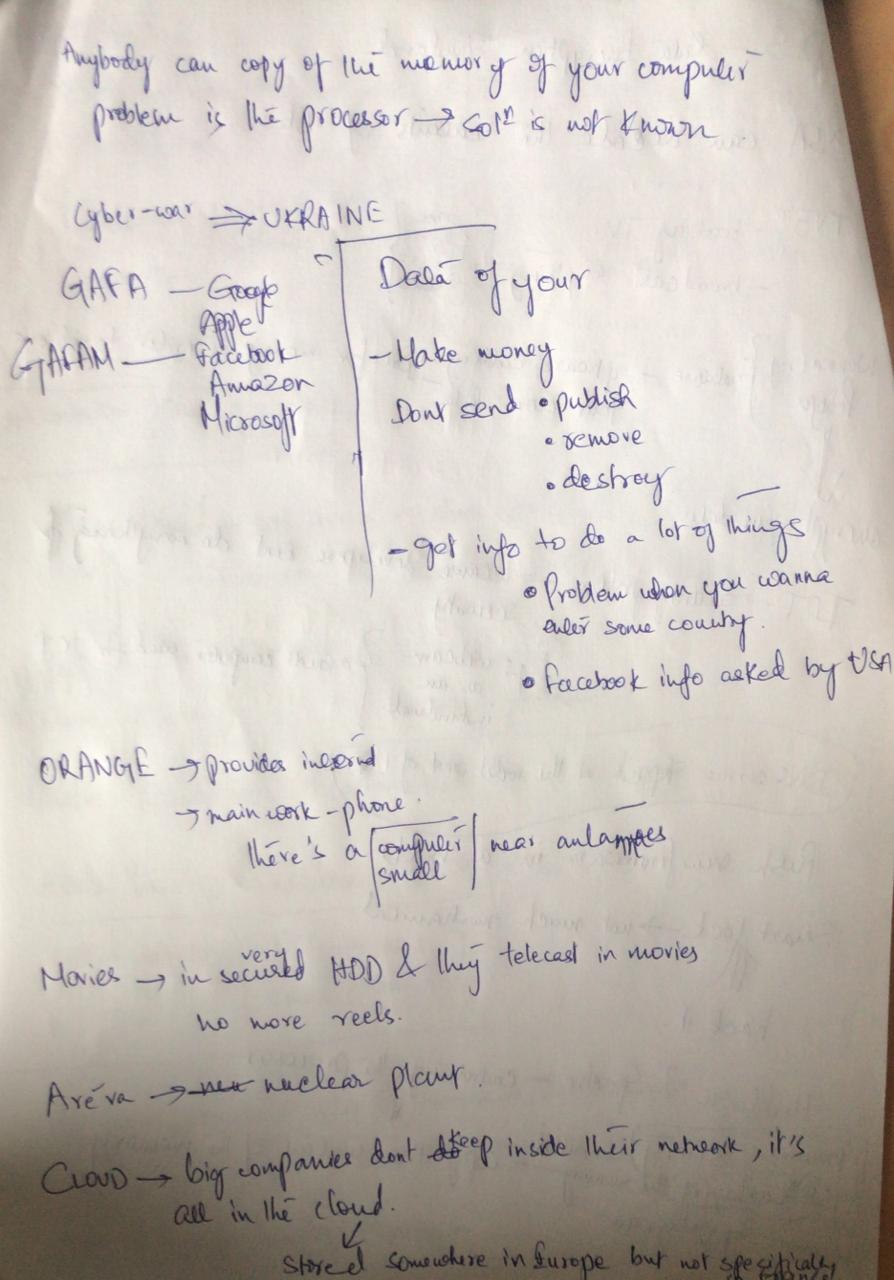 Anybody can copy of the memory of your computer
problem is the processor → solⁿ is not known
Cyber-war ⇒ UKRAINE
GAFA — Google
Apple
GAFAM — Facebook
Amazon
Microsoft
Data of your
- Make money
Dont send • publish
• remove
• destroy
- get info to do a lot of things
• Problem when you wanna
enter some country.
• Facebook info asked by USA
ORANGE → provides
→ main work - phone.
there's a computer near
small
Movies → in very secured HDD & they telecast in movies
no more reels.
Aréva → nuclear plant.
CLOUD → big companies dont keep inside their network, it's
all in the cloud.
↙
stored somewhere in Europe but not